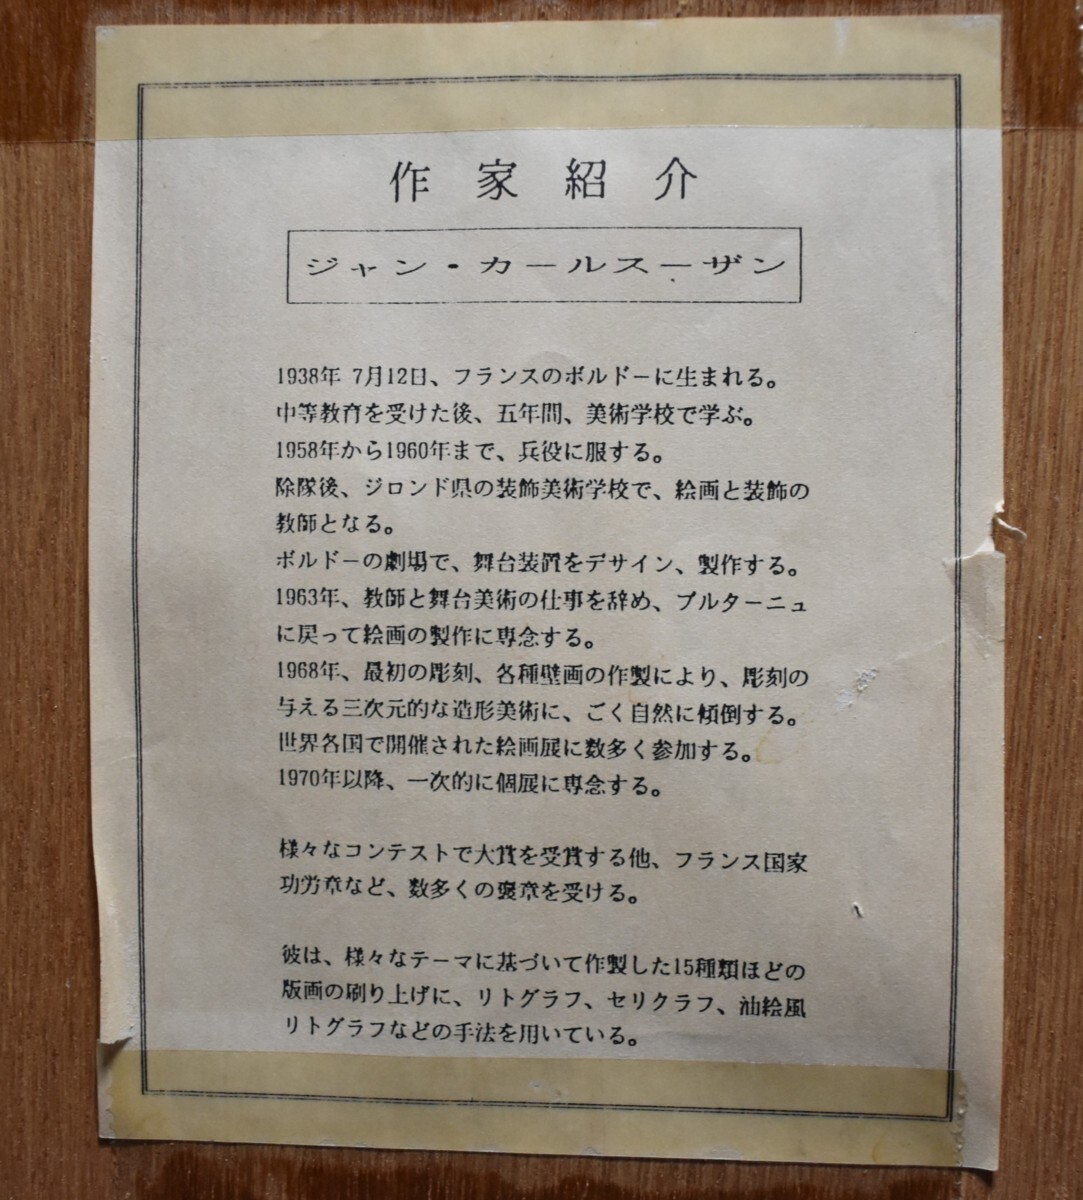 作家紹介
ジャン・カールスーザン
1938年 7月12日、フランスのボルドーに生まれる。
中等教育を受けた後、五年間、美術学校で学ぶ。
1958年から1960年まで、兵役に服する。
除隊後、ジロンド県の装飾美術学校で、絵画と装飾の
教師となる。
ボルドーの劇場で、舞台装置をデサイン、製作する。
1963年、教師と舞台美術の仕事を辞め、ブルターニュ
に戻って絵画の製作に専念する。
1968年、最初の彫刻、各種壁画の作製により、彫刻の
与える三次元的な造形美術に、ごく自然に傾倒する。
世界各国で開催された絵画展に数多く参加する。
1970年以降、一次的に個展に専念する。
様々なコンテストで大賞を受賞する他、フランス国家
功労章など、数多くの褒章を受ける。
彼は、様々なテーマに基づいて作製した15種類ほどの
版画の刷り上げに、リトグラフ、セリクラフ、油絵風
リトグラフなどの手法を用いている。